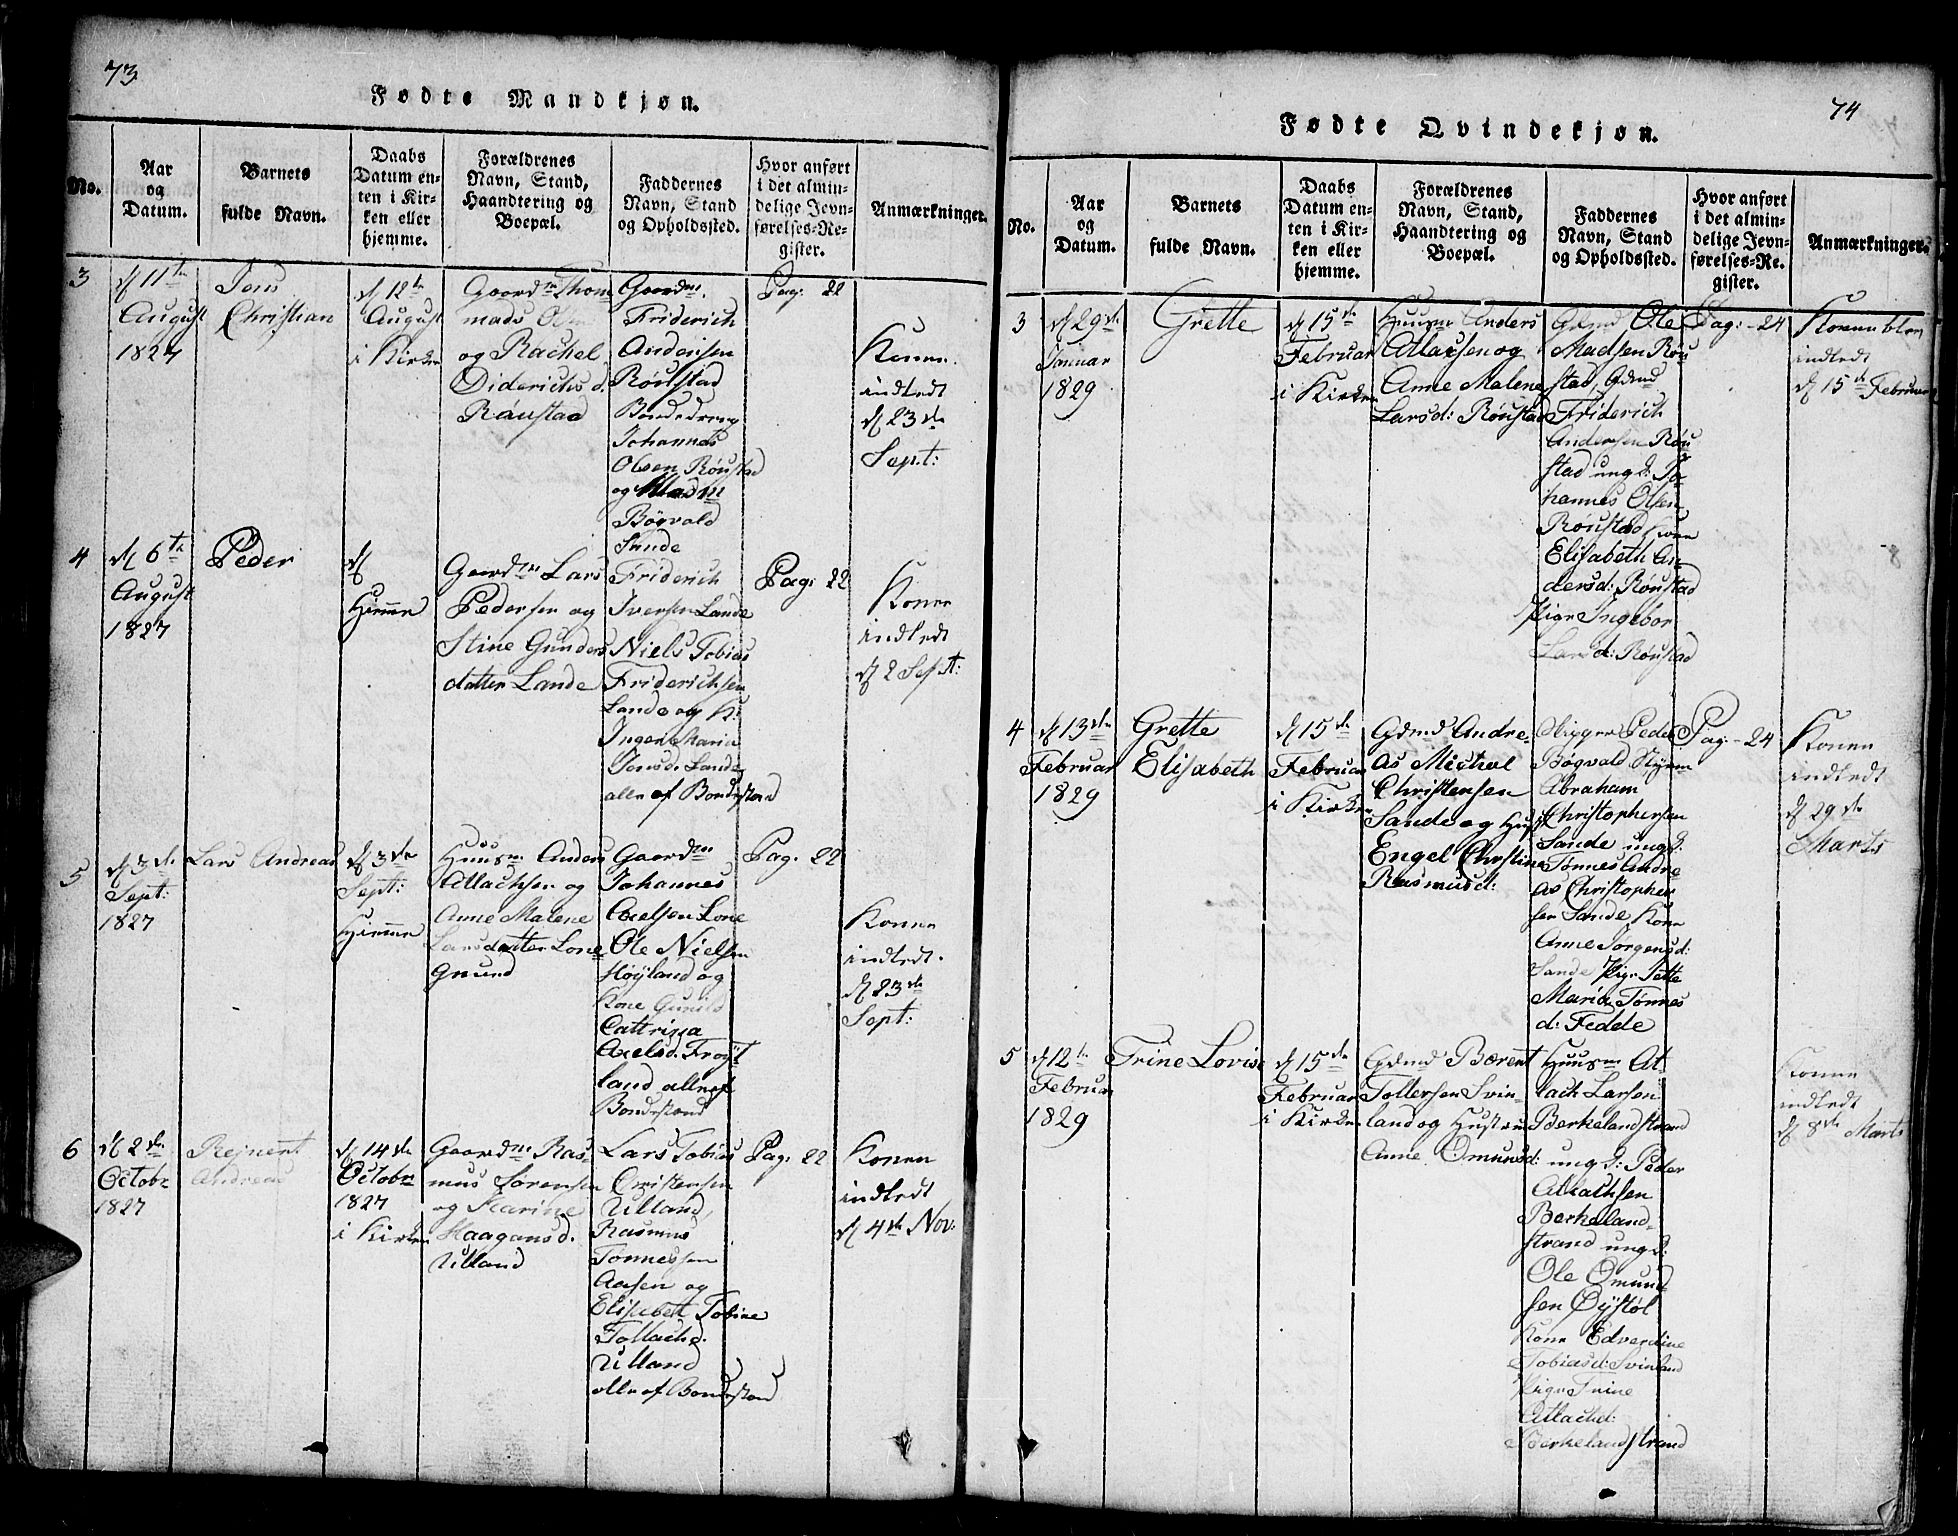 73
Fødte Mandkjøn.
No.
Aar
og
Datum.
Barnets
fulde Navn.
Daabs
Datum en-
ten i Kir-
ken eller
hjemme.
Forældrenes
Navn, Stand,
Haandtering og
Boepæl.
Faddernes
Navn, Stand
og Opholdssted.
Hvor anført
i det almin-
delige Jevn-
førelses-Re-
gister.
Anmærkninger.
3
d 11te
August
1827
Jens
Christian
d 12te
August
i Kirken
Gaardm Thom
mads Olsen
og Rachel
Diderichsd.
Røustad
Gaardm.
Friderich
Andersen
Røustad
Bondedreng
Johannes
Olsen Røustad
og Madm
Bøgvald
Sande
Pag: 22
Konen
indledt
d 23de
Sept:
4
d 6te
August
1827
Peder
d
Hiemme
Gaardm Lars
Pedersen og
Stine Gunders
datter Lande
Friderich
Iversen Lande
Niels Tobias
Friderichsen
Lande og K:
Inger Maria
Jensd. Lande
alle af Bondestand
Pag: 22
Konen
indledt
d 2 Sept:
5
d 3de
Sept:
1827
Lars Andreas
d 3de
Sept:
Hiemme
Huusm Anders
Atlachsen og
Anne Malene
Larsdatter Lone
Grund
Gaardm
Johannes
Axelsen Lone
Ole Nielsen
Høyland og
Kone Gunild
Cattrina
Axelsd. Frøyt
land alle af
Bondestand
Pag: 22
Konen
indledt.
d 23de
Sept:
6
d 2de
Octobr
1827
Rejnert
Andreas
d 14de
Octobr
1827
i Kirken
Gaardm Ras-
mus Sørensen
og Karine
Haagansd.
Ulland
Lars Tobias
Christensen
Ulland,
Rasmus
Tønnessen
Aasen og
Elisabett Tobine
Tollachd.
Ulland
alle af Bondestand
Pag: 22
Konen
indledt
d 4de Nov:
74
Fødte Qvindekjøn.
No.
Aar
og
Datum.
Barnets
fulde Navn.
Daabs
Datum en-
ten i Kir-
ken eller
hjemme.
Forældrenes
Navn, Stand,
Haandtering og
Boepæl.
Faddernes
Navn, Stand
og Opholdssted.
Hvor anført
i det almin-
delige Jevn-
førelses-Re-
gister.
Anmærkninger.
3
d 29de
Januar
1829
Grette
d 15de
Februar
i Kirken
Huusm Anders
Atlaxsen og
Anne Malene
Larsd: Røustad
Gdmd Ole
Madsen Røu
stad, Gdmd
Friderich
Andersen Røu
stad ungd: Jo-
hannes Olsen
Røustad, Kone
Elisabeth An
dersd: Røustad
Pige Ingebor
Larsd: Røustad
Pag: 24
Konen blev
indledt
d 15de Februar
4
d 13de
Februar
1829
Grette
Elisabeth
d 15de
Februar
i Kirken
Gdmd Andre-
as Michal
Christensen
Sande og Hust
Engel Christine
Rasmusd:
Skipper Peder
Bøgvald Styrm
Abraham
Christophersen
Sande ungd:
Tønnes Andre
as Christopher
sen Sande Kone
Anne Jørgensd:
Sande Pige Jette
Maria Tønnes
d: Fedde
Pag: 24
Konen
indledt
d 29de
Marts
5
d 12te
Februar
1829
Trine Lovise
d 15de
Februar
i Kirken
Gdmd Bærent
Tollersen Svin-
land og Hustru
Anne Omunsd:
Huusm At-
lach Larsen
Berkelandstrand
ungd: Peder
Atlachsen
Berkeland-
strand ungd:
Ole Omund-
sen Øystøl
Kone Edverdine
Tobiasd: Svinland
Pige Trine
Atlachd:
Berkelandstrand
Konen
indledt
d 8de Marts